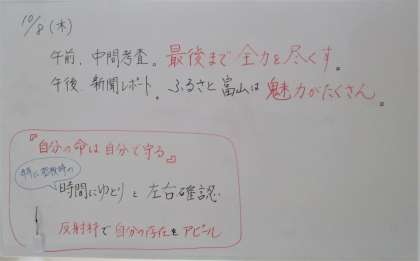 10/8(木)
午前、中間考査。最後まで全力を尽くす。
午後、新聞レポート。ふるさと富山は魅力がたくさん。
『自分の命は自分で守る』
特に登校時の
時間にゆとりと左右確認
反射材で自分の存在をアピール